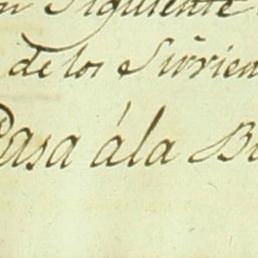 Siguiente
de los Sirvien
Pasa ála B